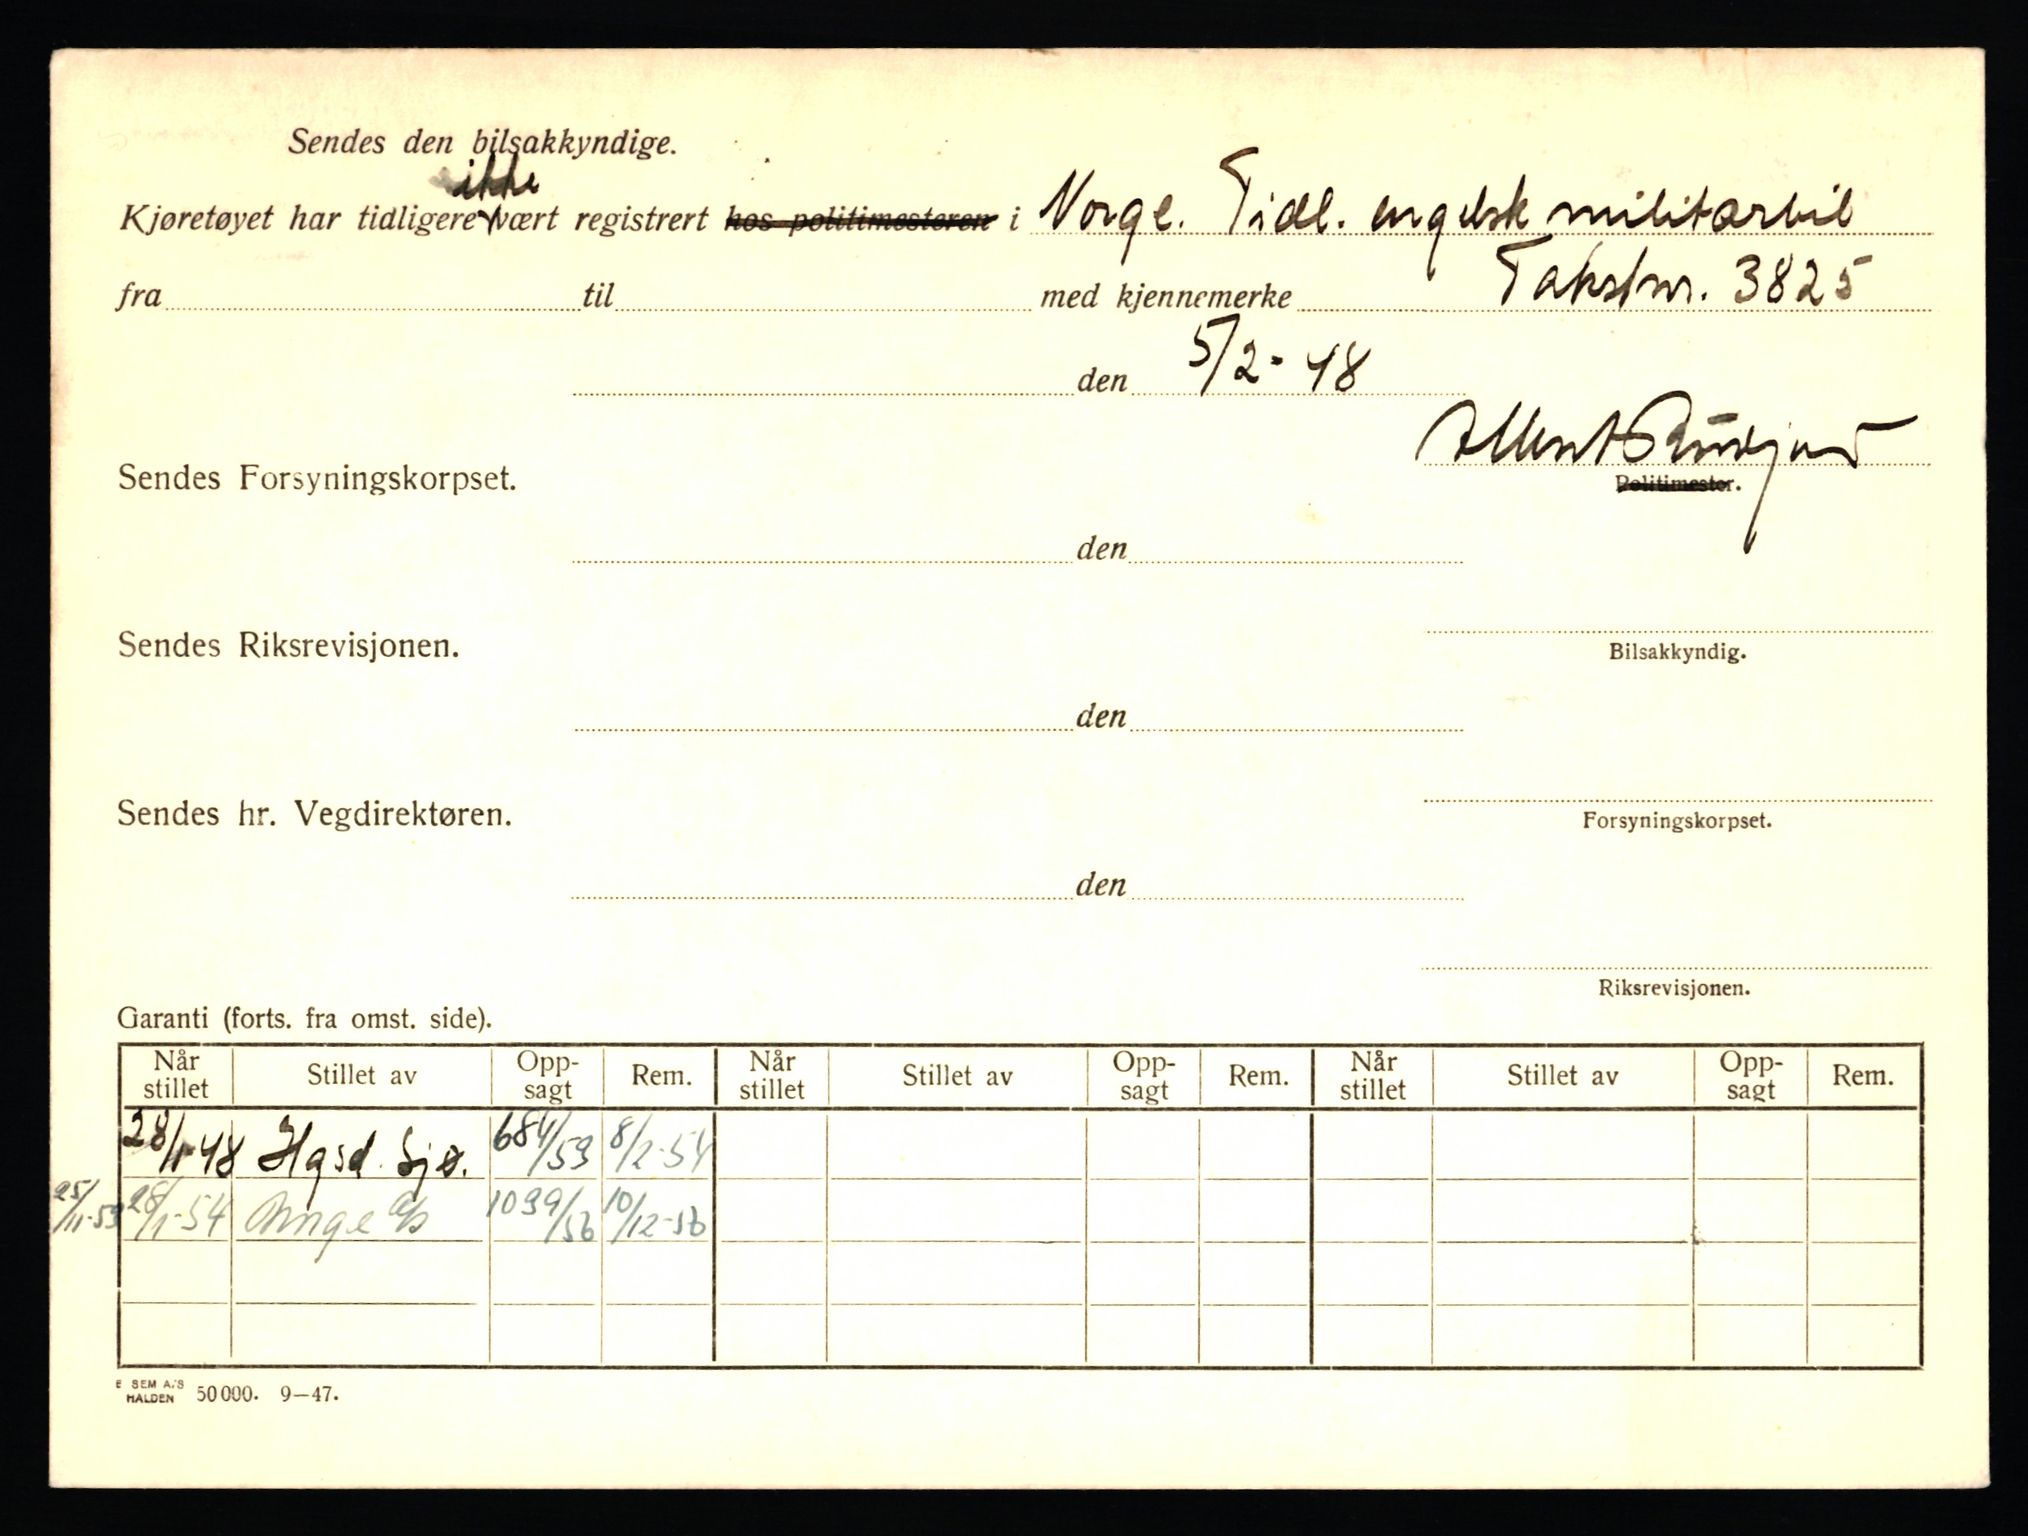 Sendes den bilsakkyndige.
ikke
Kjøretøyet har tidligere vært registrert hos politimesteren i Norge. Tidl. engelsk militærbil
fra til med kjennemerke Takstnr. 3825
den 5/2-48
Sendes Forsyningskorpset.
Politimester.
den
Sendes Riksrevisjonen.
Bilsakkyndig.
den
Sendes hr. Vegdirektøren.
Forsyningskorpset.
den
Riksrevisjonen.
Garanti (forts. fra omst. side).
Når stillet Stillet av Opp-sagt Rem. Når stillet Stillet av Opp-sagt Rem. Når stillet Stillet av Opp-sagt Rem.
28/1-48 Hgsd. Sjø. 684/53 8/2-54
25/11-53 28/1-54 a/s 1099/56 10/12-56
E SEM A/S
HALDEN 50 000. 9—47.